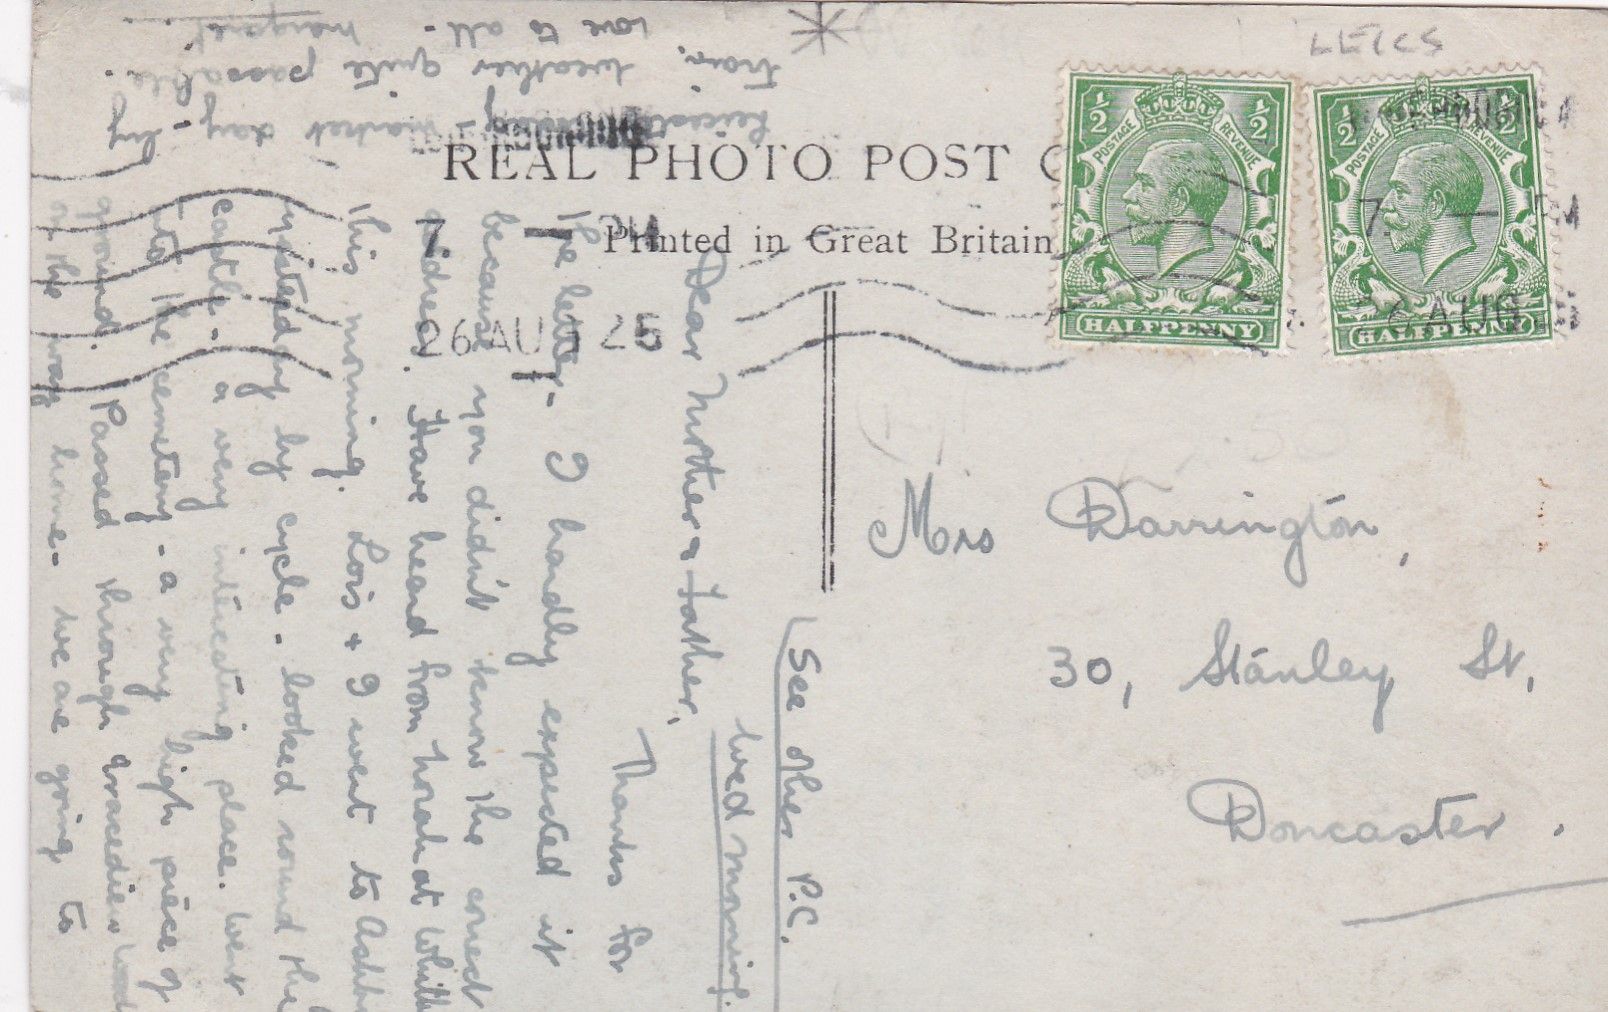 LEICS
REAL PHOTO POST C
Printed in Great Britain
½ ½
POSTAGE REVENUE
HALFPENNY
½ ½
POSTAGE REVENUE
HALFPENNY
7. — PM
26 AUG 25
7. — PM
26 AUG
See other P.C.
Wed morning.
Dear Mother & Father,
Thanks for
the letter - I hardly expected it
because you didn't know the correct
address. Have heard from Norah at
this morning. Lois + I went to
yesterday by cycle - looked round the
castle - a very interesting place. Went
into the cemetery - a very high piece of
ground. Passed through
on the way home - We are going to
market day - by
tram, weather quite passable.
Love to all - Margaret
Mrs Darrington,
30, Stanley St,
Doncaster.